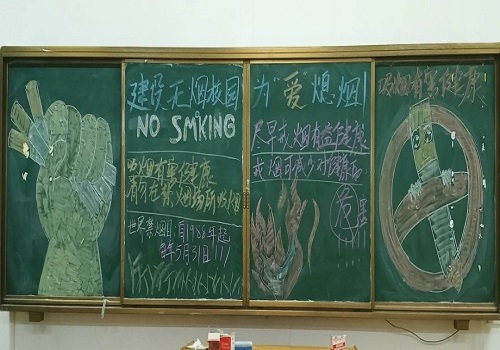 建设无烟校园
NO SMoKING
吸烟有害健康
请勿在禁烟场所吸烟
世界禁烟日：自1989年起
每年5月31日!!!
为“爱”熄烟！
尽早戒烟有益健康
戒烟可减少对健康的
危害
吸烟有害健康